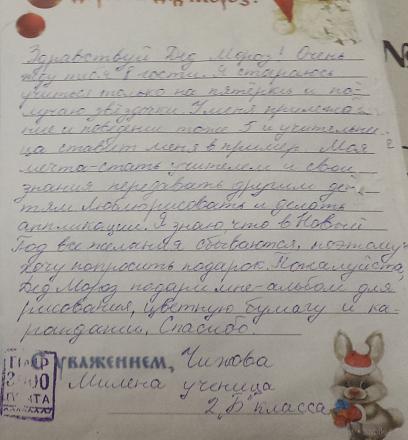 Мороз!
Здравствуй Дед Мороз! Очень
жду тебя в гости. Я стараюсь
учиться только на пятёрки и по-
лучаю звёздочки. У меня прилежа-
ние и поведение тоже 5 и учительни-
ца ставит меня в пример. Моя
мечта-стать учителем и свои
знания передавать другим де-
тям. Люблю рисовать и делать
аппликации. Я знаю, что в Новый
Год все желания сбываются, поэтому
хочу попросить подарок. Пожалуйста,
Дед Мороз подари мне-альбом для
рисования, цветную бумагу и ка-
рандаши. Спасибо.
С уважением, Чижова
Милена ученица
2 „Б" класса